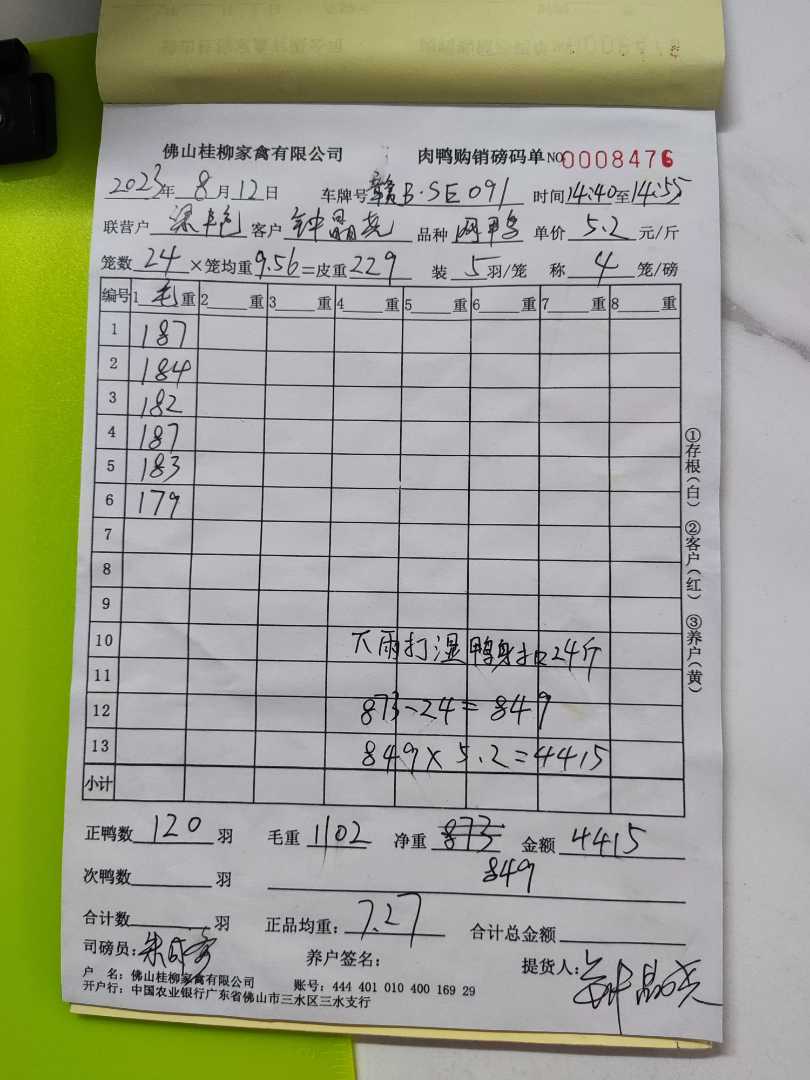 佛山桂柳家禽有限公司 肉鸭购销磅码单 NO 0008476
2023年 8月12日 车牌号 赣B·SE091 时间14:40至14:55
联营户 客户 钟晶亮 品种 网鸭 单价 5.2 元/斤
笼数 24 ×笼均重9.56=皮重229 装 5羽/笼 称 4 笼/磅
编号 1毛重 2 重 3 重 4 重 5 重 6 重 7 重 8 重
1 187
2 184
3 182
4 187
5 183
6 179
7
8
9
10 下雨打湿鸭身扣24斤
11
12 873-24=849
13 849×5.2=4415
小计
①存根(白) ②客户(红) ③养户(黄)
正鸭数 120 羽 毛重 1102 净重 873 金额 4415
849
次鸭数 羽
合计数 羽 正品均重: 7.27 合计总金额
司磅员: 养户签名: 提货人: 钟晶亮
户 名: 佛山桂柳家禽有限公司 账号: 444 401 010 400 169 29
开户行: 中国农业银行广东省佛山市三水区三水支行